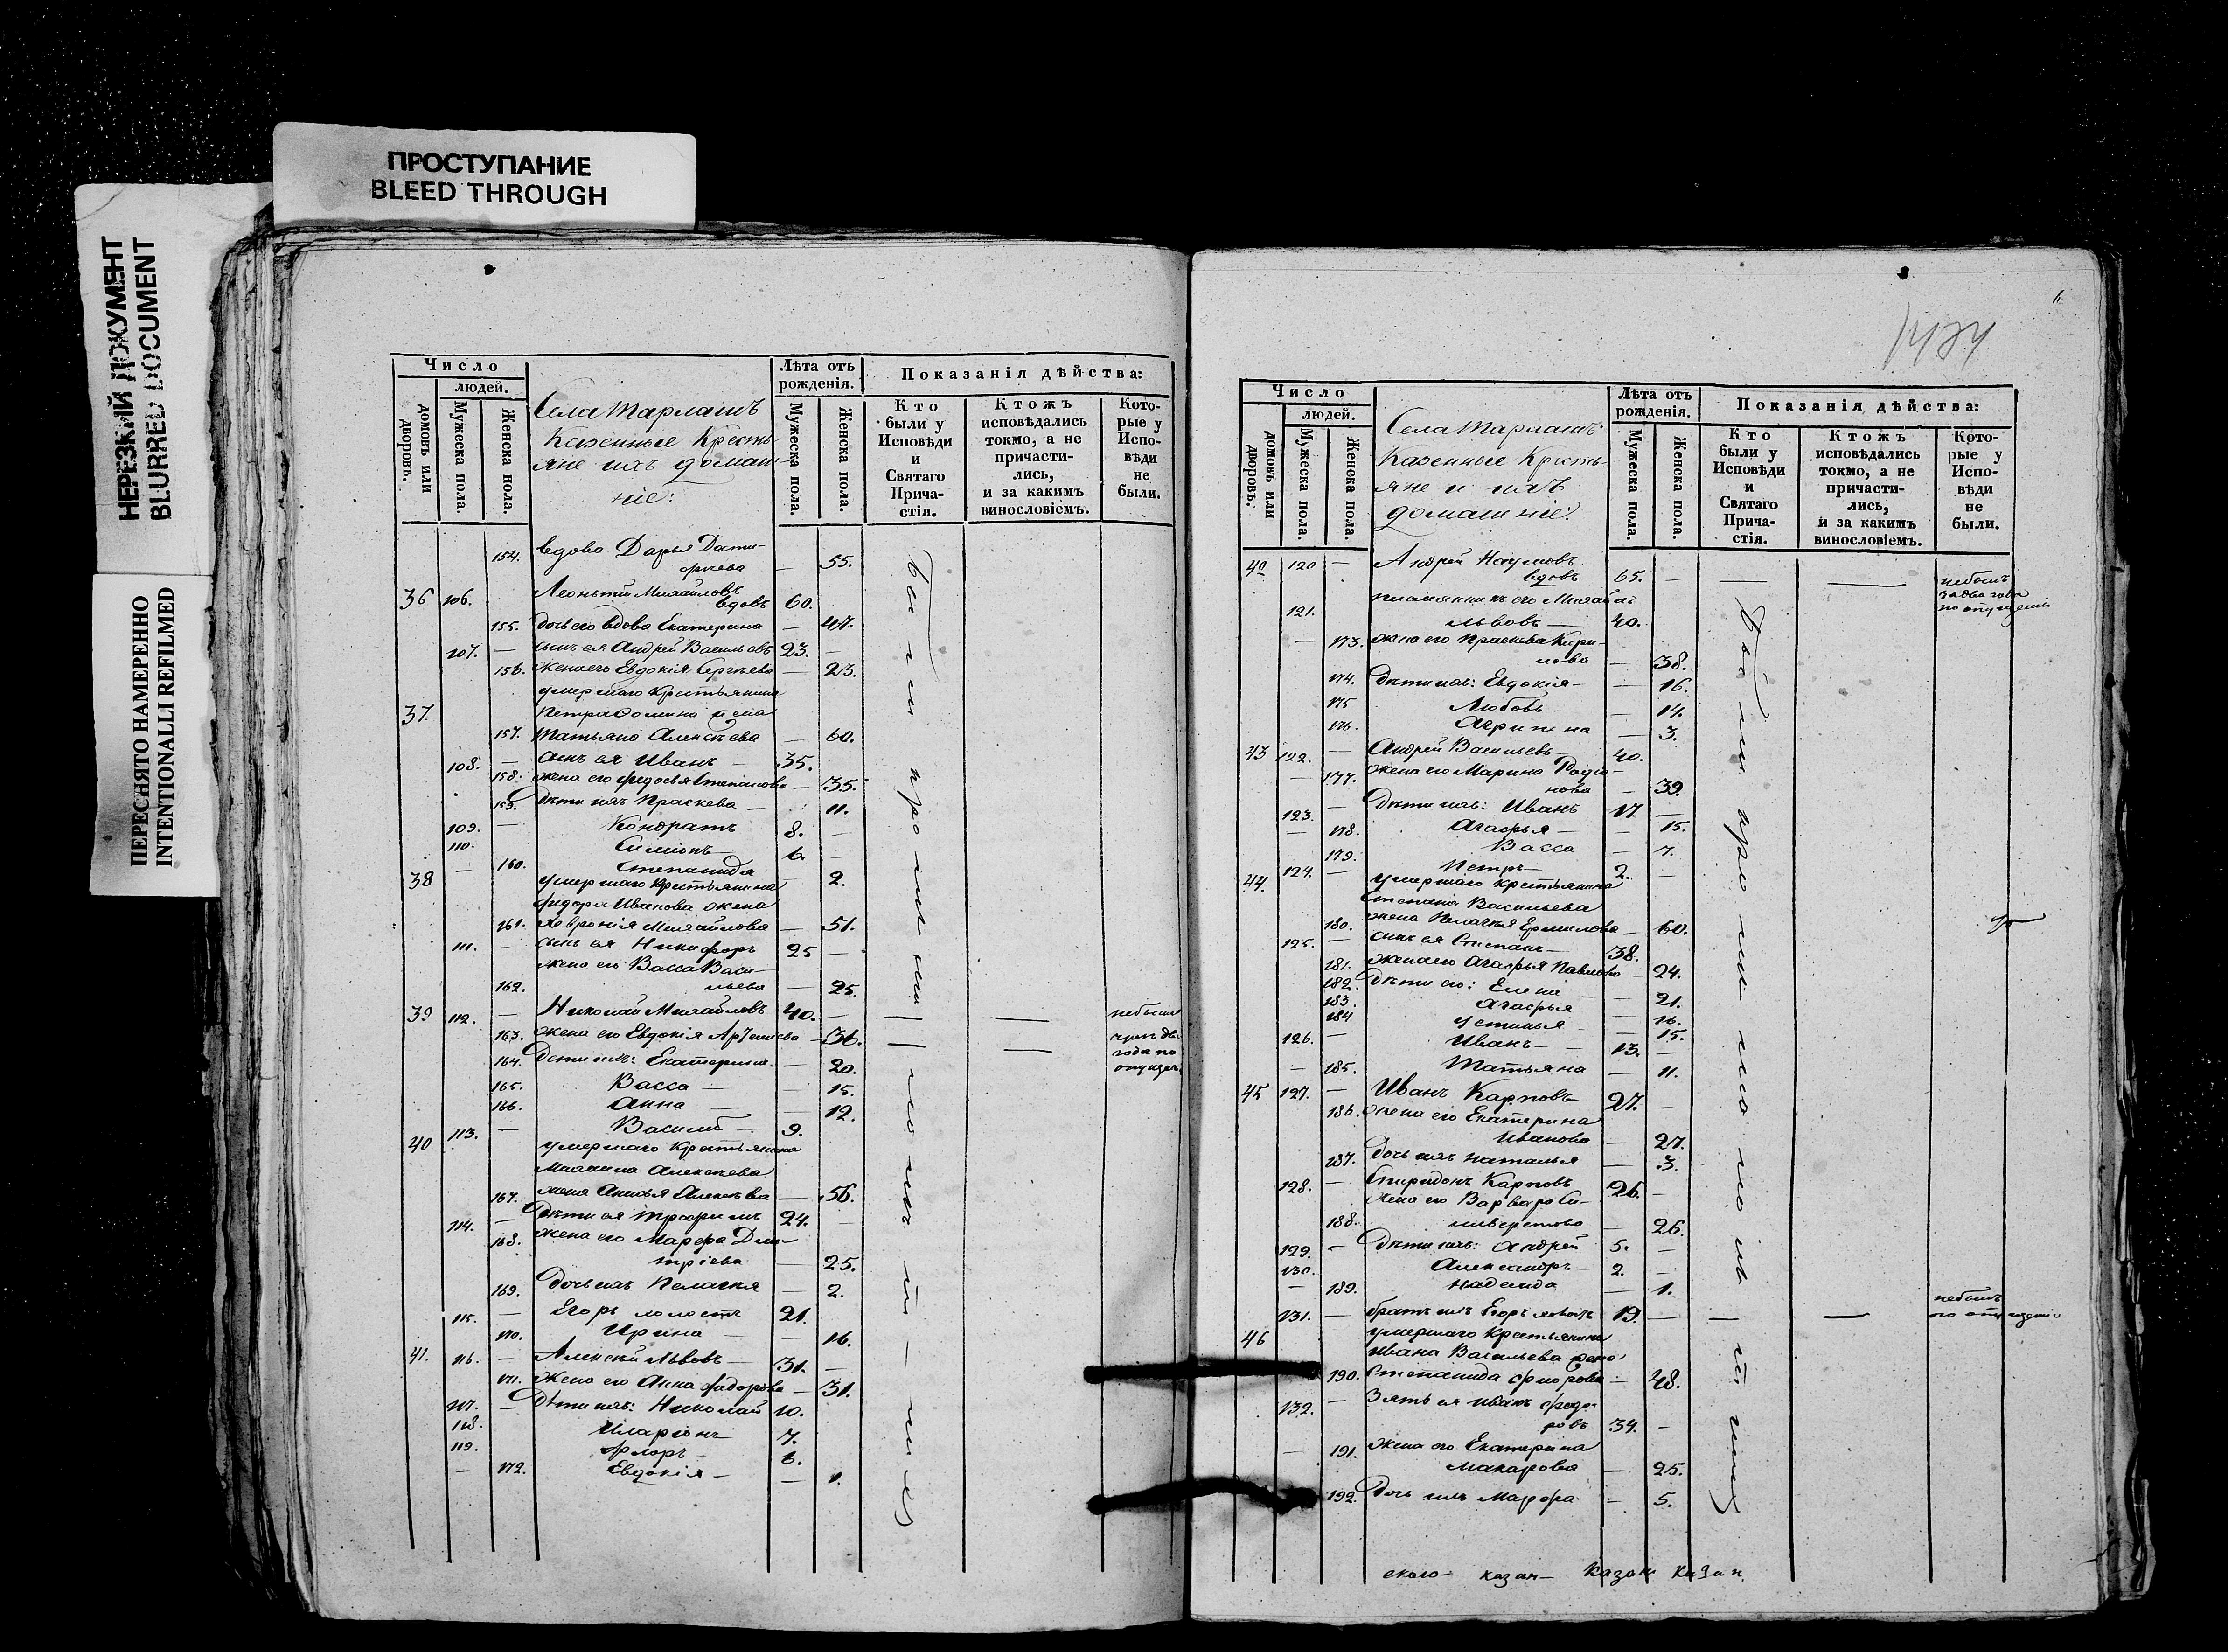 ПРОСТУПАНИЕ
BLEED THROUGH
НЕРЕЗКИЙ ДОКУМЕНТ
BLURRED DOCUMENT
ПЕРЕСНЯТО НАМЕРЕННО
INTENTIONALLI REFILMED
Число
людей.
домовъ или дворовъ.
Мужеска пола.
Женска пола.
Села Тарлашъ
Казенные Кресть-
яне ихъ домаш-
ніе:
Лѣта отъ рожденія.
Мужеска пола.
Женска пола.
Показанія дѣйства:
Кто были у Исповѣди и Святаго Прича-стія.
Ктожъ исповѣдались токмо, а не причасти-лись, и за какимъ винословіемъ.
Кото-рые у Испо-вѣди не были.
154. вдова Дарья
— 55.
36 106. Леонтій Михайловъ
вдовъ 60.
155. дочь его вдова Екатерина — 47.
107. — сынъ ея Андрей Васильевъ 23. —
156. жена его Евдокія Сергѣева — 23.
умершаго Крестьянина
37. Петра жена
157. Татьяна Алексѣева — 60.
108. — сынъ ея Иванъ — 35.
158. жена его Федосья Степанова — 35.
159. Дѣти ихъ Праскева — 11.
109. — Кондратъ 8. —
110. Симіонъ 6. —
— 160. Степанида — 2.
38 умершаго Крестьянина
Федора Иванова жена
161. Хевронія Михайлова — 51.
111. — сынъ ея Никифоръ 25 —
жена его Васса Васи-
162. льева — 25.
39 112. — Николай Михайловъ 40. — — — небыли
163. жена его Евдокія Артемьева — 36. — —
164. Дети ихъ: Екатерина. — 20. года по
165. Васса — — 15.
166. Анна — — 12.
113. — Василій — 9.
40 умершаго Крестьянина
Михаила Алексѣева
167. жена Анисья Алексѣва — 56.
114. — Дѣти ея Трофимъ 24. —
168. жена его Марфа Дми-
тріева — 25.
169. Дочь ихъ Пелагея — 2.
115. — Егоръ холостъ 21.
170. Ирина — — 16.
41. 116. — Алексѣй Львовъ — 31. —
171. жена его Анна Федорова — 31.
117. — Дѣти ихъ: Николай 10.
118. Иларіонъ 7.
119. Флоръ — 6.
— 172. Евдокія — — 1.
были
1484
Число
людей.
домовъ или дворовъ.
Мужеска пола.
Женска пола.
Села Тарлашъ
Казенные Кресть-
яне и ихъ
домашніе:
Лѣта отъ рожденія.
Мужеска пола.
Женска пола.
Показанія дѣйства:
Кто были у Исповѣди и Святаго Прича-стія.
Ктожъ исповѣдались токмо, а не причасти-лись, и за какимъ винословіемъ.
Кото-рые у Испо-вѣди не были.
40 120 — Андрей Наумовъ
вдовъ 65. — — — небылъ
за два года
по опущенію
племянникъ его Михайла
121. Львовъ — 40.
— 173. жена его Праскева Кири-
лова — 38.
174. Дѣти ихъ: Евдокія — — 16.
175 Любовь — — 14.
176. Агрипина — 3.
43 122. — Андрей Васильевъ — 40.
— 177. жена его Марина Родіо-
нова — 39.
123. — Дѣти ихъ: Иванъ 17 —
— 178. Агафья — — 15.
179. Васса — 7.
124. — Петръ — 2. —
44. умершаго крестьянина
Степана Васильева
180. жена Пелагея Ермилова — 60.
125. — сынъ ея Степанъ — 38.
181. жена его Агафья Павлова — 24.
182. Дѣти его: Елена — 21.
183. Агафья — 16.
184 Устинья — — 15.
126. — Иванъ — — 13. —
— 185. Татьяна — 11.
45 127. — Иванъ Карповъ 27. —
186. жена его Екатерина
Иванова — 27.
187. Дочь ихъ Наталья — 3.
128. — Спиридонъ Карповъ 26. —
жена его Варвара Си-
188. ливерстова — 26.
129. — Дѣти ихъ: Андрей 5. —
130. Александръ — 2. —
— 189. Надежда — 1.
131. — братъ ихъ Егоръ холостъ 19. — — — небылъ
по опущенію
46 умершаго Крестьянина
Ивана Васильева жена
190. Степанида Флорова — 48.
132. — Зять ея Иванъ Федо-
ровъ 34. —
— 191. жена его Екатерина
Макарова — 25.
192. Дочь ихъ Марфа — 5.
были
казан— Казан Казан.